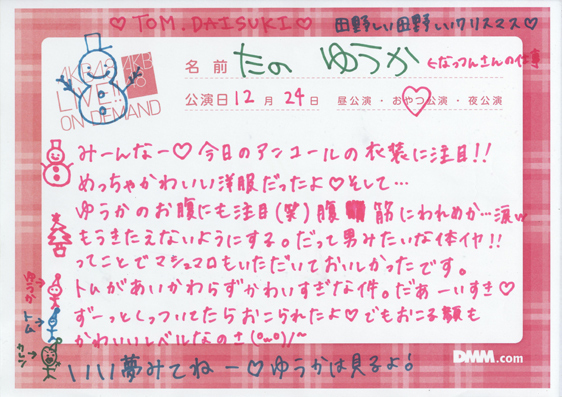 ♡TOM.DAISUKI♡ 田野しい田野しいクリスマス♡
AKB48
LIVE!!
ON DEMAND
AKB
48
名前 たの ゆうか ←なっつんさんの仕事
公演日 12月24日 昼公演・おやつ公演・夜公演
みーんなー♡今日のアンコールの衣装に注目!!
めっちゃかわいい洋服だったよ♡そして…
ゆうかのお腹にも注目(笑)腹筋にわれめが…涙
もうきたえないようにする。だって男みたいな体イヤ!!
ってことでマシュマロもいただいておいしかったです。
トムがあいかわらずかわいすぎな件。だあーいすき♡
ずーっとくっついてたらおこられたよ♡でもおこる顔も
かわいいレベルなのさ(^ω^)/~
ゆうか→
トム→
いい夢みてねー♡ゆうかは見るよ!
DMM.com